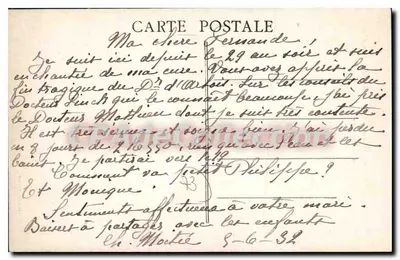 CARTE POSTALE
Ma chère Fernande!
Je suis ici depuis le 29 au soir et suis
enchantée de ma cure. Vous avez appris la
fin tragique du Dr d'Artois. Sur les conseils du
Docteur Finck qui le connait beaucoup j'ai pris
le Docteur Mathieu dont je suis très contente.
Il est très soigne bien j'ai perdu
en 8 jours de rien qu'avec l'eau et les
bains. Je partirai vers le 19
Comment va petit Philippe?
Et Monique.
Sentiments affectueux à votre mari.
Baisers à partager avec les enfants
5-6-32